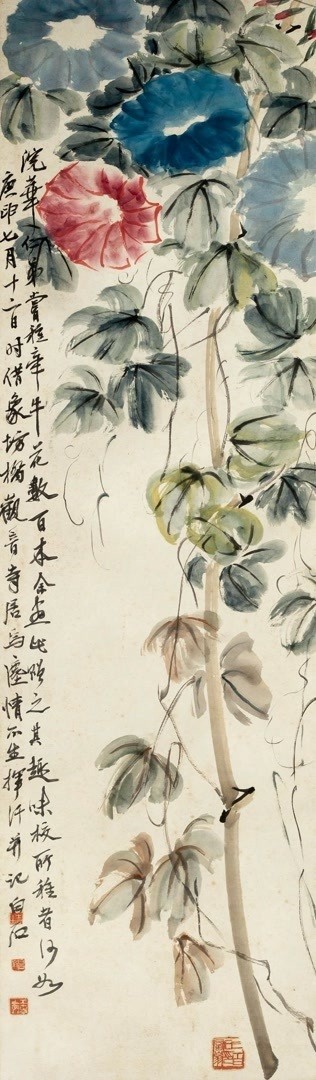 浣華仁弟嘗種牽牛花數百本余畫此贈之其趣味校所種者何如
庚申七月十二日时借象坊橋觀音寺居焉塵情不生揮汗并记白石